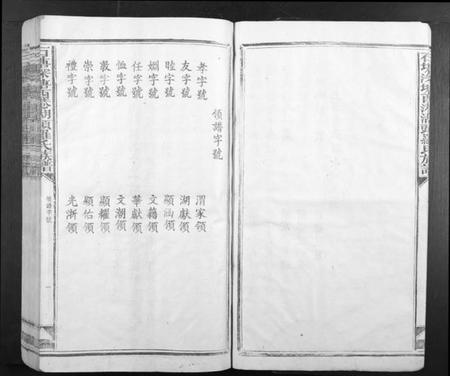 領譜字號
孝字號 渭家領
友字號 湖獻領
睦字號 顯涵領
婣字號 文籍領
任字號 華獻領
恤字號 文潮領
敦字號 顯耀領
崇字號 顯佑領
禮字號 光浙領
領譜字號